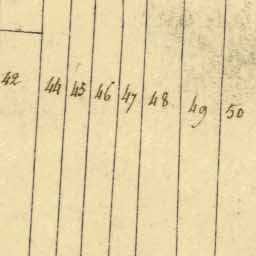 42 44 45 46 47 48 49 50